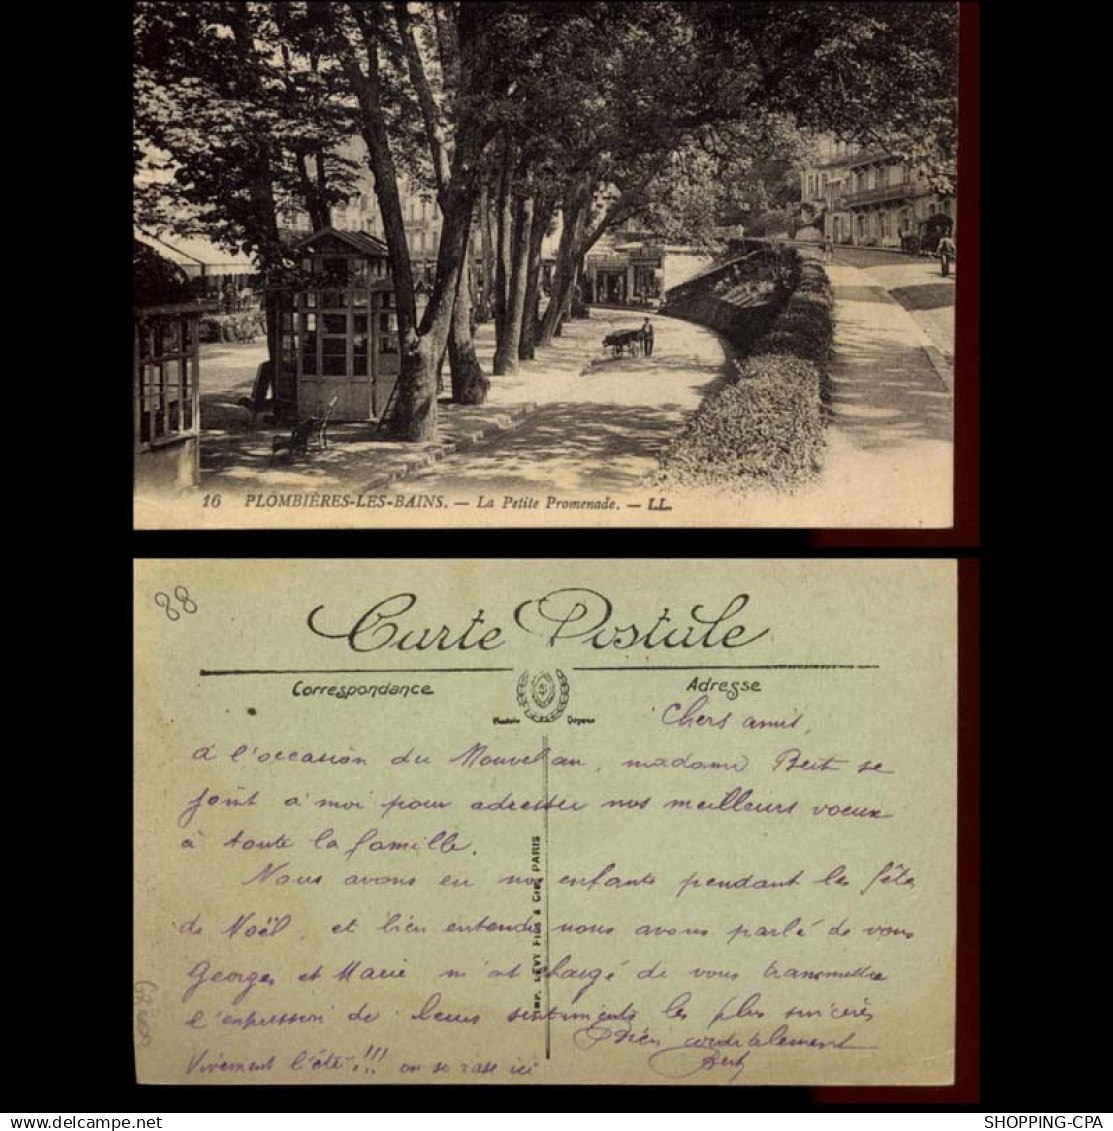 16 PLOMBIÈRES-LES-BAINS. — La Petite Promenade. — LL.
88
Carte Postale
Correspondance
Adresse
Chers amis,
à l'occasion du Nouvel an, madame Bert se
joint à moi pour adresser nos meilleurs voeux
à toute la famille.
Nous avons eu nos enfants pendant les fêtes
de Noël, et bien entendu nous avons parlé de vous
Georges et Marie m'ont chargé de vous transmettre
l'expression de leurs sentiments les plus sincères
Bien cordialement
Vivement l'été !!! on se rase ici
Bert
IMP. LÉVY FILS & CIE. PARIS
SHOPPING-CPA